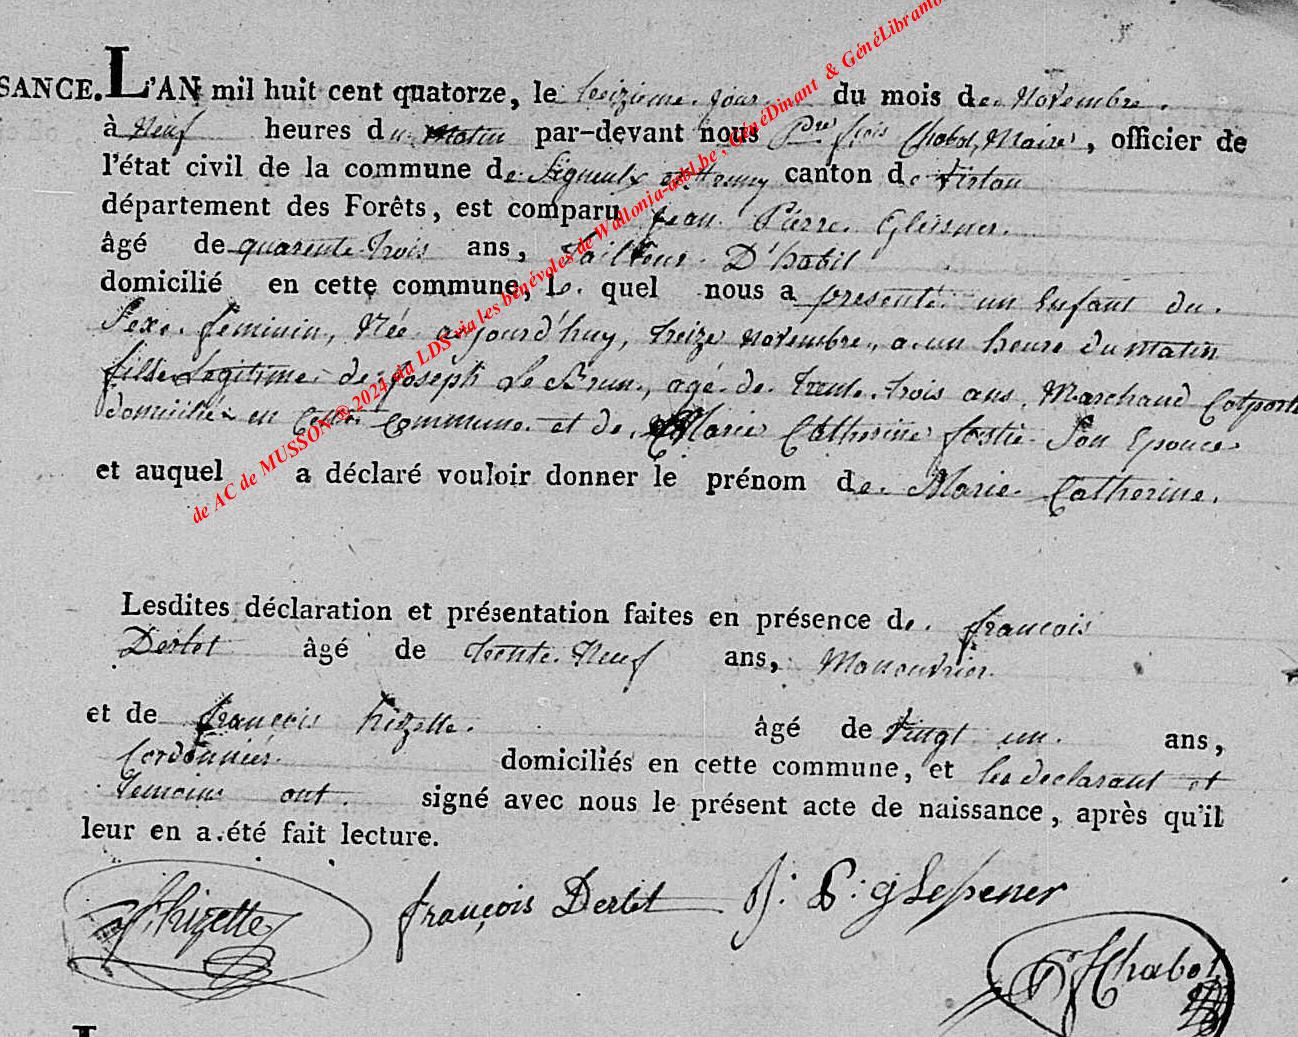 SANCE. L'AN mil huit cent quatorze, le treizieme jour du mois de Novembre.
à Neuf heures du Matin par-devant nous Pre frois Chabot, Maire, officier de
l'état civil de la commune de Signeulx et canton de Virton
département des Forêts, est comparu Jean Pierre Gleisner.
âgé de quarente trois ans, tailleur D'habil
domicilié en cette commune, le quel nous a presenté un Enfant du
Sexe feminin, Née aujourd'huy, treize novembre, a un heure du matin
fille Legitime de Joseph Le Brun, agé de trente trois ans Marchand Colport
domicilié en Cette Commune et de Marie Catherine fostie Son Epouce
et auquel a déclaré vouloir donner le prénom de Marie Catherine.
Lesdites déclaration et présentation faites en présence de francois
Derlet âgé de trente Neuf ans, Manouvrier
et de françois hizette âgé de Vingt un ans,
Cordonnier domiciliés en cette commune, et les declarant et
temoins ont signé avec nous le présent acte de naissance, après qu'il
leur en a été fait lecture.
f. hizette françois Derlet J: P: gleßener
PF Chabot
de AC de MUSSON ® 2024 via LDS via les bénévoles de Wallonia-asbl.be, GénéDinant & GénéLibramo